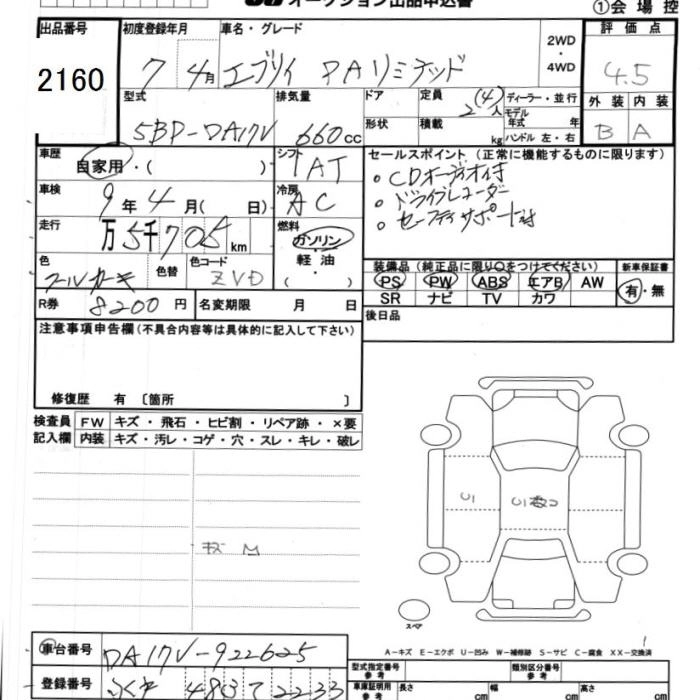 オークション出品申込書
①会場控
出品番号 初度登録年月 車名・グレード 2WD・4WD 評価点
2160 7 4月 エブリイ PAリミテッド 4.5
型式 排気量 ドア 定員 2(4)人 ディーラー・並行 外装 内装
5BD-DA17V 660cc 形状 積載 kg モデル年式 年 ハンドル 左・右 B A
車歴 自家用・( ) シフト IAT セールスポイント(正常に機能するものに限ります)
車検 9年4月( 日) 冷房 AC
。CDオーディオ付
。ドライブレコーダー
。セーフティサポート付
走行 万5千705km 燃料 ガソリン・軽油・( )
色 色替 色コード ZVD
装備品(純正品に限り○をつけてください) 新車保証書
PS PW ABS エアB AW 有・無
SR ナビ TV カワ
R券 8200円 名変期限 月 日
後日品
注意事項申告欄(不具合内容等は具体的に記入して下さい)
修復歴 有 〔箇所 〕
検査員 FW キズ・飛石・ヒビ割・リペア跡・×要
記入欄 内装 キズ・汚レ・コゲ・穴・スレ・キレ・破レ
キズ M
スペア
A-キズ E-エクボ U-凹み W-補修跡 S-サビ C-腐食 XX-交換済
車台番号 DA17V-922625
登録番号 483 て 2233
型式指定番号 参考 類別区分番号 参考
車庫証明用 参考 長さ cm 幅 cm 高さ cm